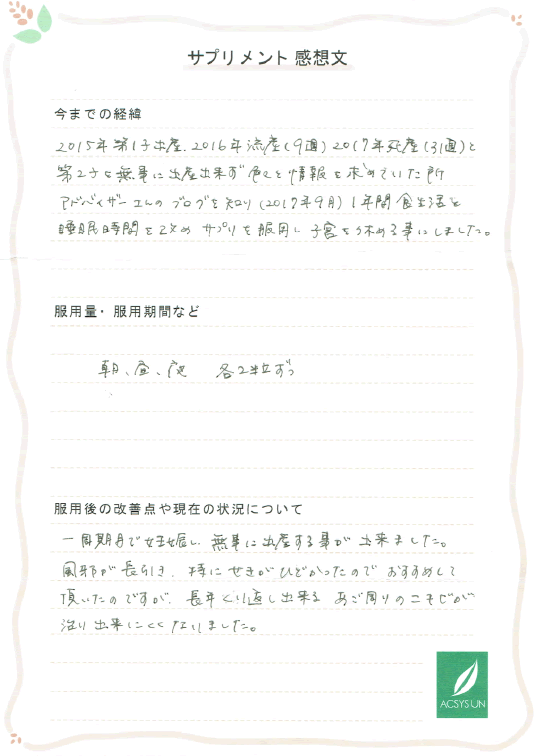 サプリメント 感想文
今までの経緯
2015年第1子出産、2016年流産(9週) 2017年死産(31週)と
第2子を無事に出産出来ず色々と情報を求めていた所
アドバイザーさんのブログを知り(2017年9月) 1年間食生活と
睡眠時間を改め サプリを服用し 子宮を休める事にしました。
服用量・服用期間など
朝、昼、夜 各2粒ずつ
服用後の改善点や現在の状況について
一周期目で妊娠し、無事に出産する事が出来ました。
風邪が長引き、特にせきがひどかったので おすすめして
頂いたのですが、長年くり返し出来る あご周りのニキビが
治り出来にくくなりました。
ACSYSUN